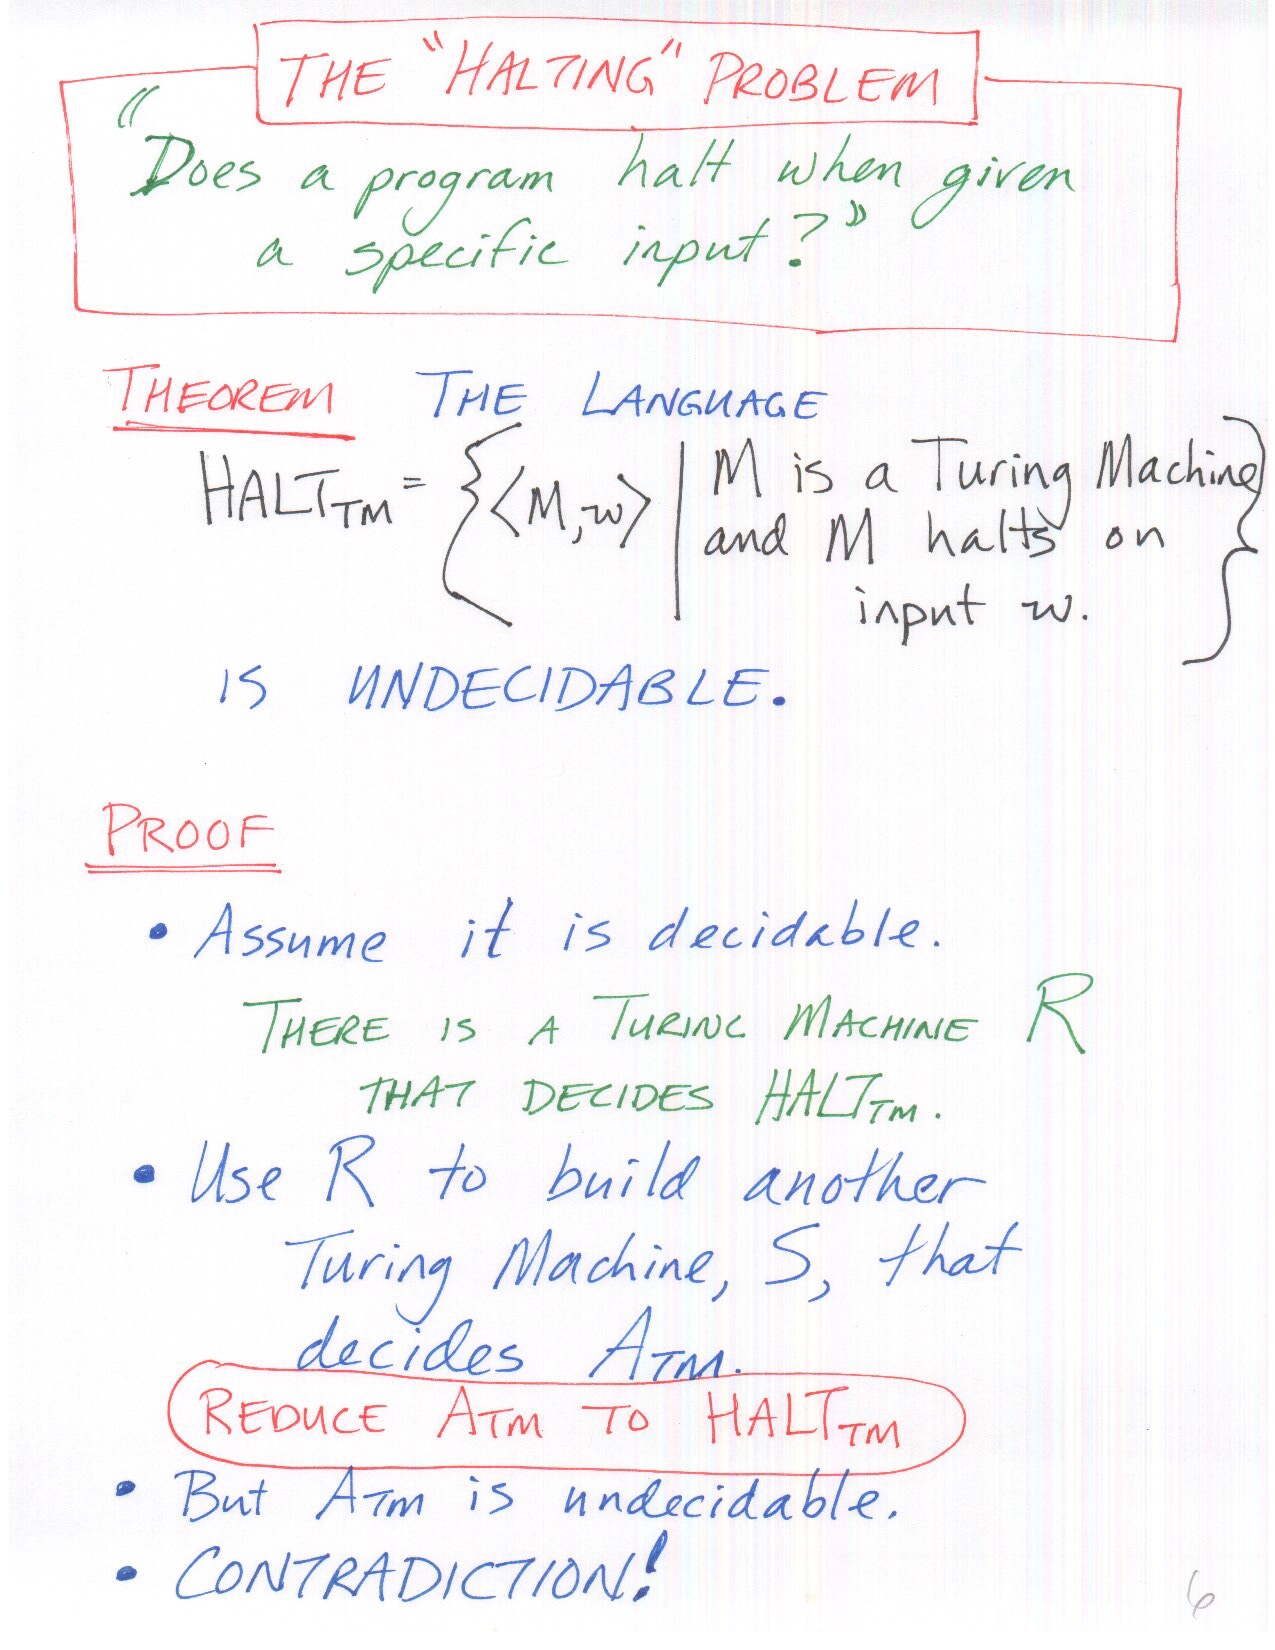 THE "HALTING" PROBLEM
"Does a program halt when given
a specific input?"
THEOREM THE LANGUAGE
HALT_TM = {⟨M,w⟩ | M is a Turing Machine
and M halts on
input w. }
IS UNDECIDABLE.
PROOF
• Assume it is decidable.
THERE IS A TURING MACHINE R
THAT DECIDES HALT_TM.
• Use R to build another
Turing Machine, S, that
decides A_TM.
REDUCE A_TM TO HALT_TM
• But A_TM is undecidable.
• CONTRADICTION!
6